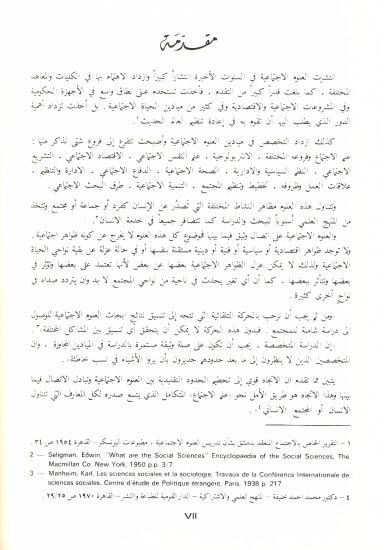 مقدمة
انتشرت العلوم الاجتماعية في السنوات الأخيرة انتشاراً كبيراً وازداد الاهتمام بها في الكليات والمعاهد
المختلفة ، كما بلغت قدراً كبيراً من التقدم . فأخذت تستخدم على نطاق واسع في الأجهزة الحكومية
وفي المشروعات الاجتماعية والاقتصادية وفي كثير من ميادين الحياة الاجتماعية . بل أخذت تزداد أهمية
الدور الذي يطلب اليها أن تقوم به في إعادة تنظيم العالم الحديث¹.
كذلك ازداد التخصص في ميادين العلوم الاجتماعية وأصبحت تتفرع إلى فروع شتى نذكر منها :
علم الاجتماع وفروعه المختلفة . الانثربولوجية ، علم النفس الاجتماعي . الاقتصاد الاجتماعي . التشريع
الاجتماعي ، النظم السياسية والادارية ، الصحة الاجتماعية ، الدفاع الاجتماعي . الادارة والتنظيم .
علاقات العمل وظروفه . تخطيط وتنظيم المجتمع . التنمية الاجتماعية . طرق البحث الاجتماعي .
وتتناول هذه العلوم مظاهر النشاط المختلفة التي تصدر عن الإنسان كفرد أو جماعة أو مجتمع وتتخذ
من المنهج العلمي أسلوباً للبحث والدراسة كما تتضافر جميعاً في خدمة الانسان².
والعلوم الاجتماعية على اتصال وثيق فيما بينها فموضوع كل هذه العلوم لا يخرج عن كونه ظواهر اجتماعية .
ولا توجد ظواهر اقتصادية أو سياسية أو فنية أو دينية مستقلة بنفسها أو في حالة عزلة عن بقية نواحي الحياة
الاجتماعية ولذلك لا يمكن عزل الظواهر الاجتماعية بعضها عن بعض لأنها تعتمد على بعضها وتؤثر في
بعضها وتتأثر ببعضها . كما أن أي تغير يحدث في ناحية من نواحي المجتمع لا بد وان يتردد صداه في
نواح أخرى كثيرة .
«ومن ثم يجب أن نرحب بالحركة التلقائية التي تتجه إلى تنسيق نتائج ابحاث العلوم الاجتماعية للوصول
الى دراسة شاملة للمجتمع . فبدون هذه الحركة لا يمكن أن يتحقق أي تنسيق بين المشاكل المختلفة»³.
«إن الدراسة المتخصصة . يجب أن تكون على صلة وثيقة مستمرة بالدراسة في الميادين المجاورة . وان
المتخصصين الذين لا ينظرون إلى ما بعد حدودهم جديرون بأن يروا الأشياء في نسب خاطئة» .
يتبين مما تقدم ان الاتجاه قوي إلى تحطيم الحدود التقليدية بين العلوم الاجتماعية وتبادل الاتصال فيما
بينها وهذا الاتجاه هو طريق الأمل نحو «علم الاجتماع» المتكامل الذي يتسع صدره لكل المعارف التي تتناول
الانسان أو المجتمع الانساني⁴.
١ – التقرير الخاص بالاجتماع المنعقد بدمشق بشأن تدريس العلوم الاجتماعية . مطبوعات اليونسكو – القاهرة ١٩٥٤ ص ٣٤ .
2 — Seligman, Edwin, "What are the Social Sciences" Encyclopaedia of the Social Sciences, The
Macmillan Co. New York, 1950 p.p. 3/7.
3 — Manheim, Karl, Les sciences sociales et la sociologie, Travaux de la Conférence Internationale de
sciences sociales, Centre d'étude de Politique étrangère, Paris, 1938 p. 217
٤ – دكتور محمد احمد خليفة – المنهج العلمي والاشتراكية – الدار القومية للطباعة والنشر – القاهرة ١٩٧٠ ص ٢٩/٢٥ .
VII